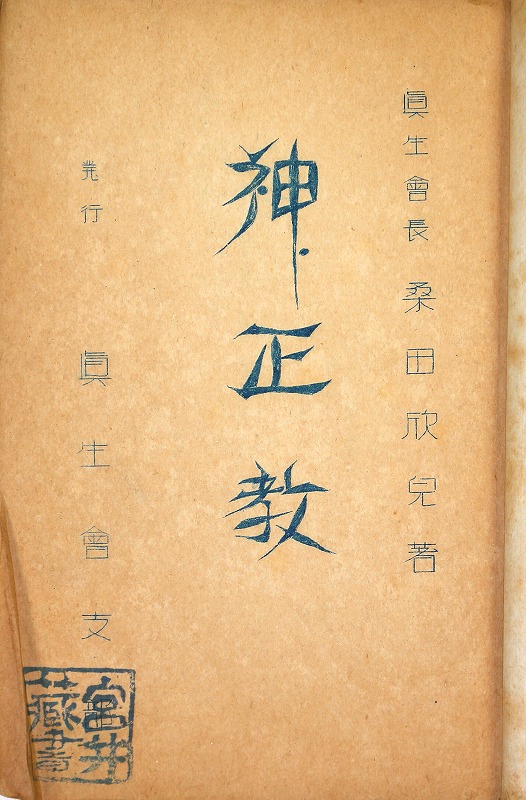 眞生會長 桑田欣兒著
神正教
発行 眞生會支
宮井
藏書